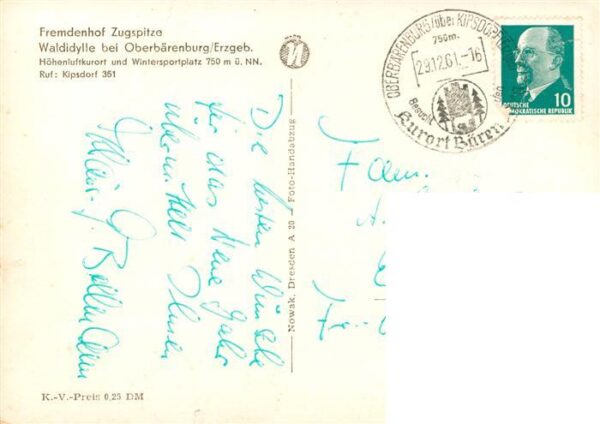 Fremdenhof Zugspitze
Waldidylle bei Oberbärenburg/Erzgeb.
Höhenluftkurort und Wintersportplatz 750 m ü. NN.
Ruf: Kipsdorf 361
OBERBÄRENBURG/über KIPSDORF
750m.
29.12.61.-16
Besucht
Kurort Bären
DEUTSCHE
DEMOKRATISCHE REPUBLIK
10
Die besten Wünsche
für das Neue Jahr
übermittelt Ihnen
Nowak, Dresden A 20 — Foto-Handabzug
Fam.
K.-V.-Preis 0,25 DM